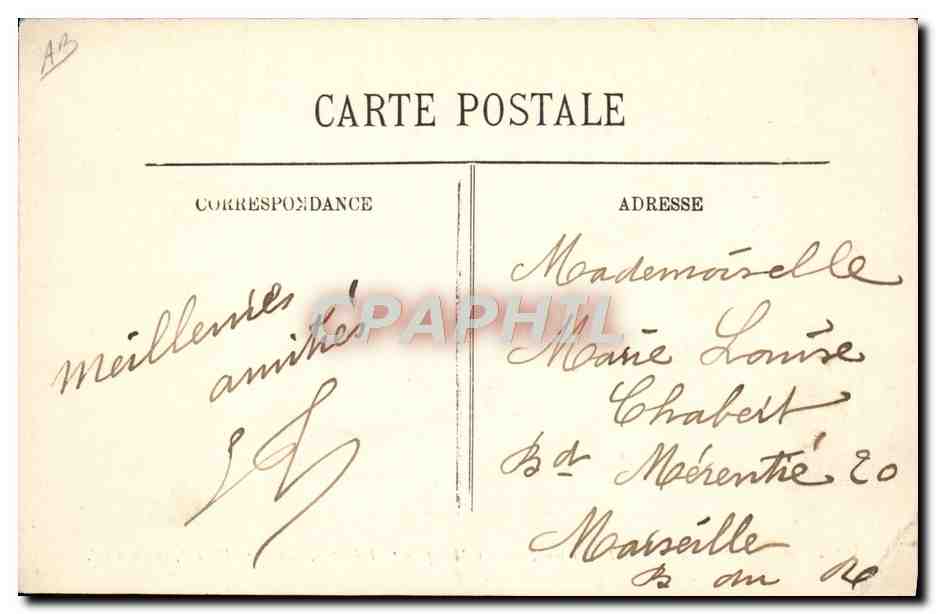 AB
CARTE POSTALE
CORRESPONDANCE
Meilleures
amitiés
ADRESSE
Mademoiselle
Marie Louise
Chabert
Bd Mérentié 20
Marseille
B du R
CPAPHIL